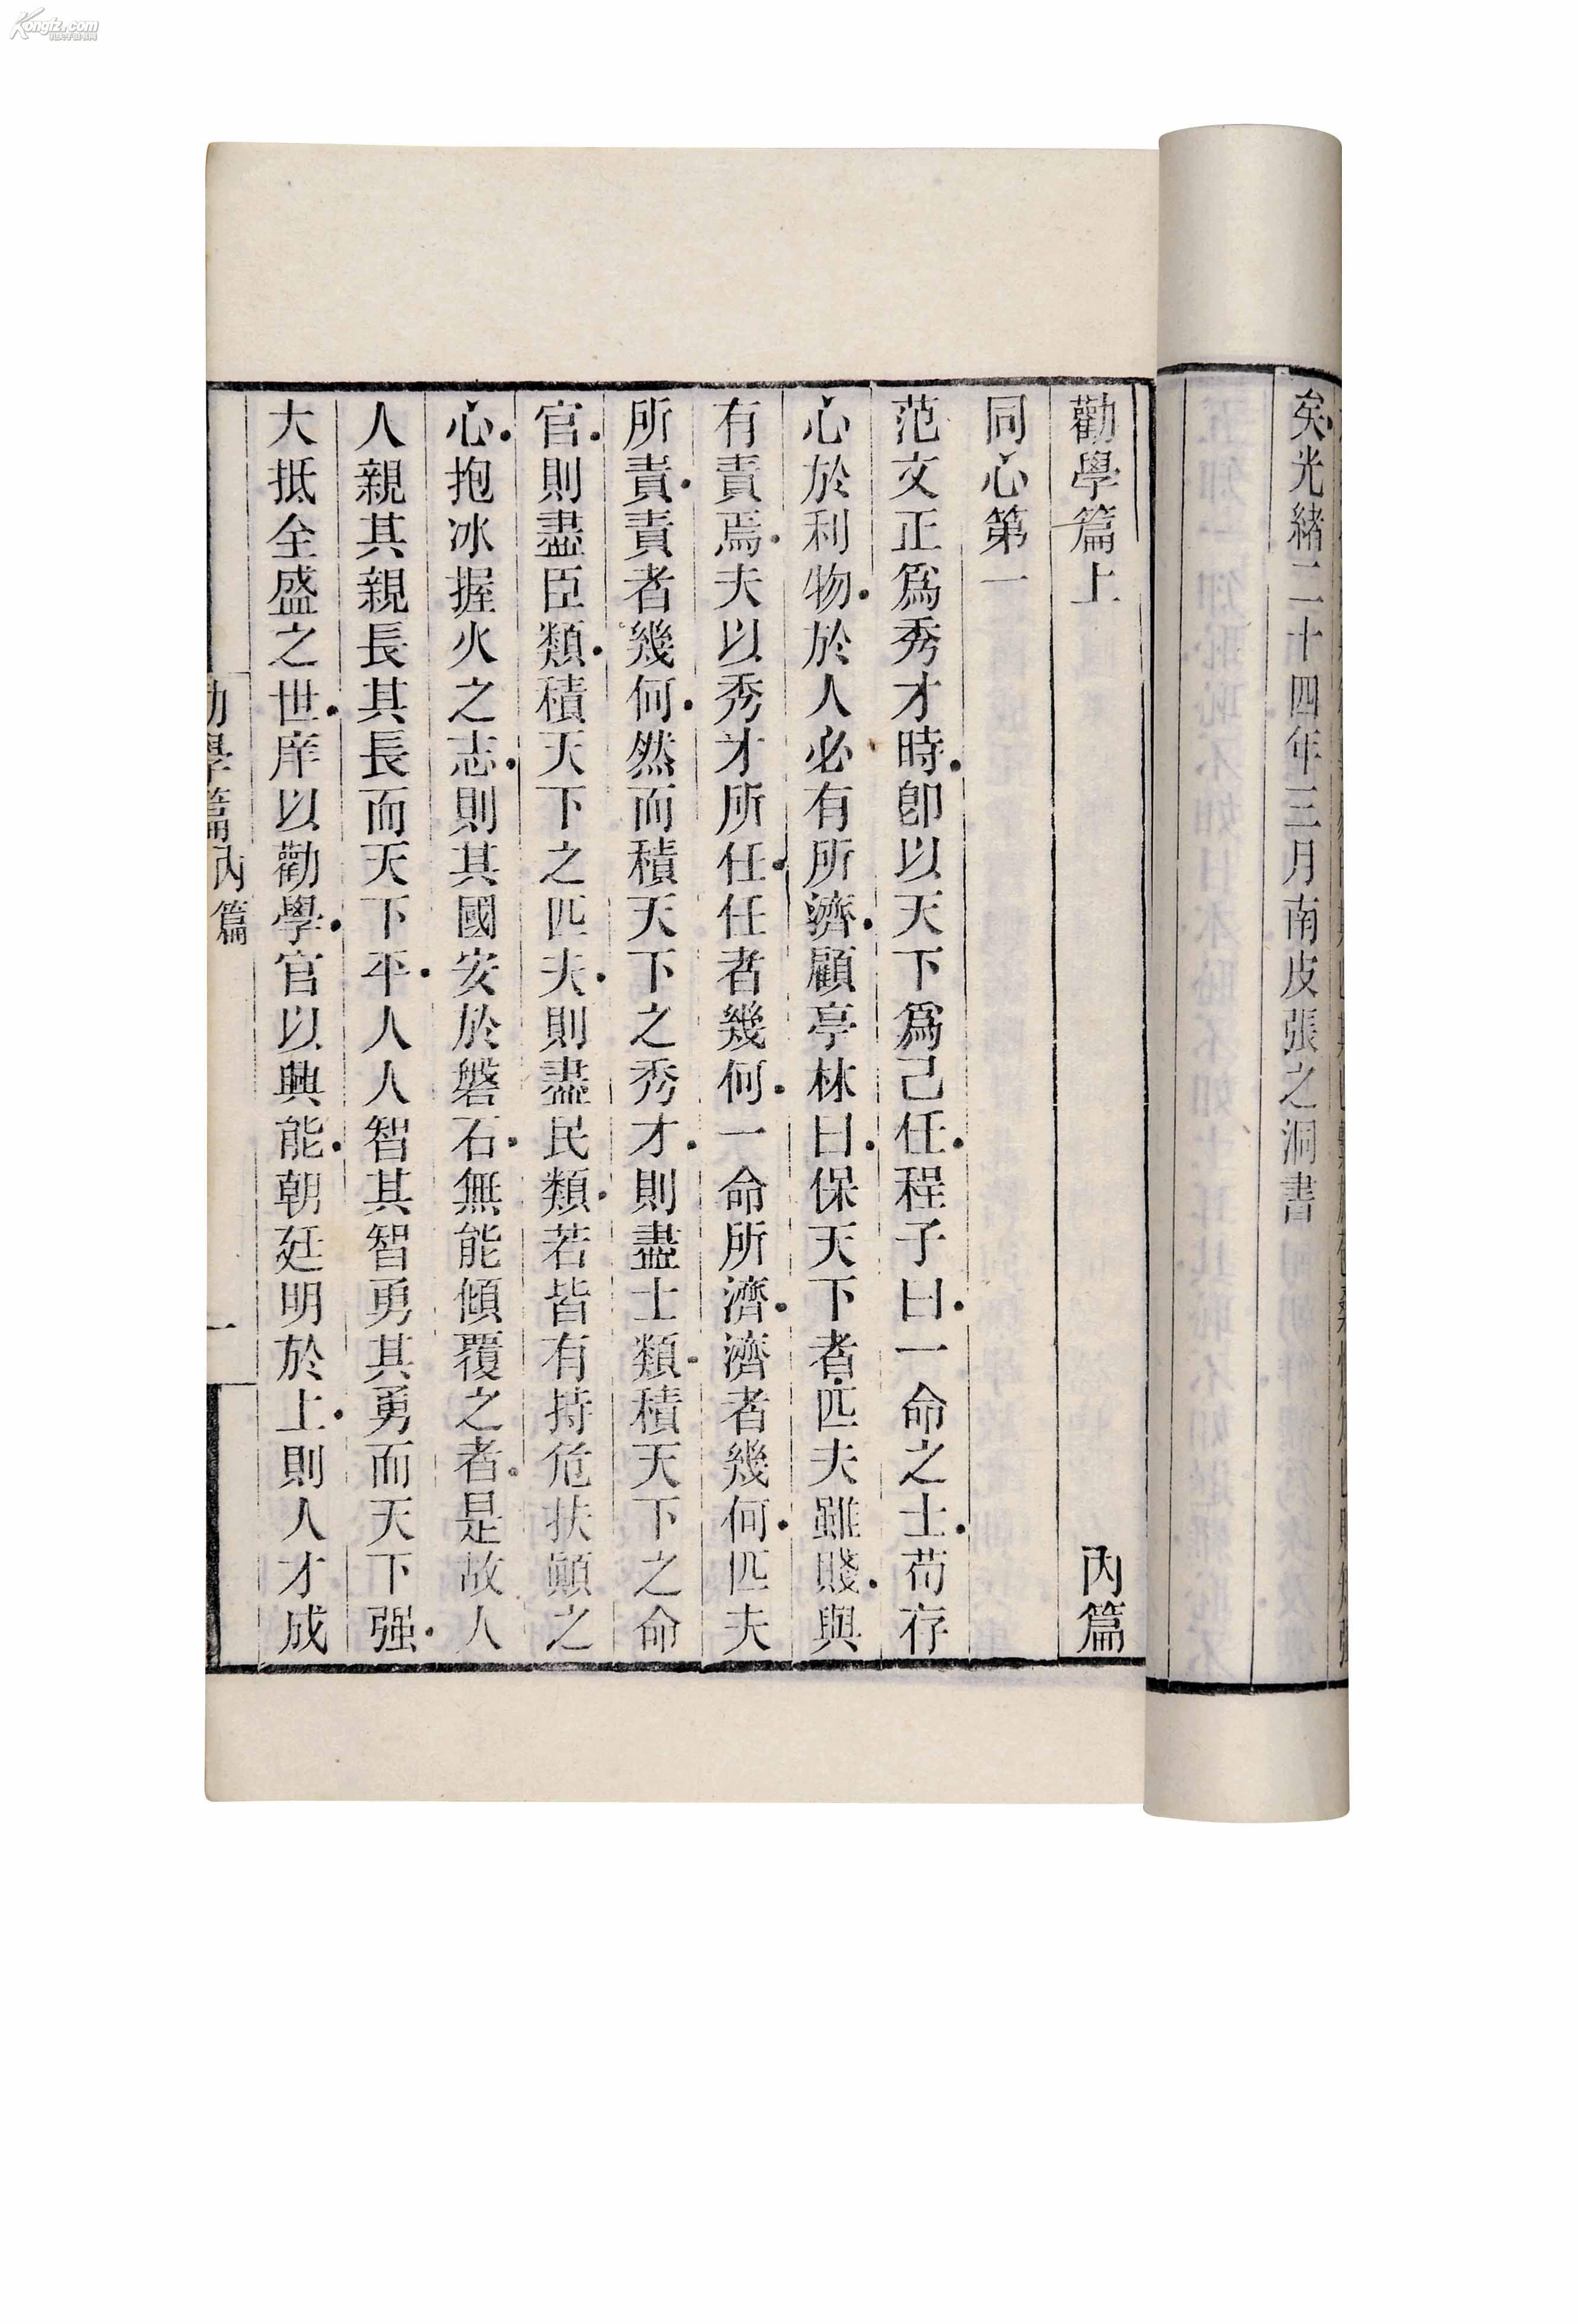 矣光緒二十四年三月南皮張之洞書
勸學篇上 內篇
同心第一
范文正爲秀才時卽以天下爲己任程子曰一命之士苟存
心於利物於人必有所濟顧亭林曰保天下者匹夫雖賤與
有責焉夫以秀才所任任者幾何一命所濟濟者幾何匹夫
所責責者幾何然而積天下之秀才則盡士類積天下之命
官則盡臣類積天下之匹夫則盡民類若皆有持危扶顚之
心抱冰握火之志則其國安於磐石無能傾覆之者是故人
人親其親長其長而天下平人人智其智勇其勇而天下强
大抵全盛之世庠以勸學官以興能朝廷明於上則人才成
勸學篇內篇 一
Kongfz.com